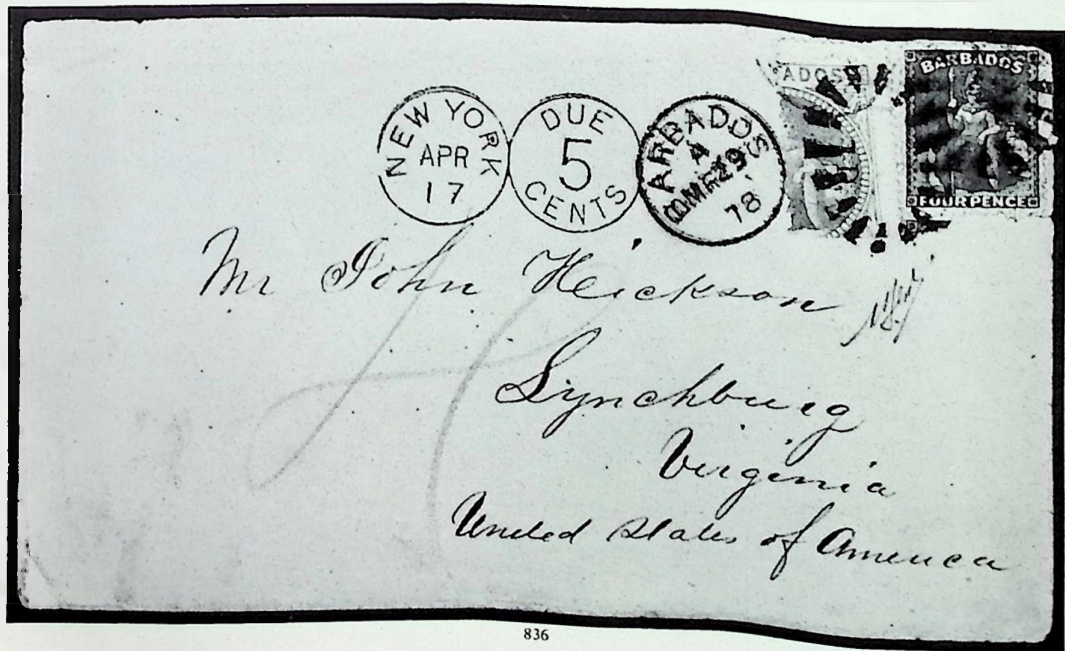 NEW YORK
APR
17
DUE
5
CENTS
BARBADOS
4
MR 29
78
ADOS
BARBADOS
FOUR PENCE
Mr John Hickson
Lynchburg
Virginia
United States of America
836